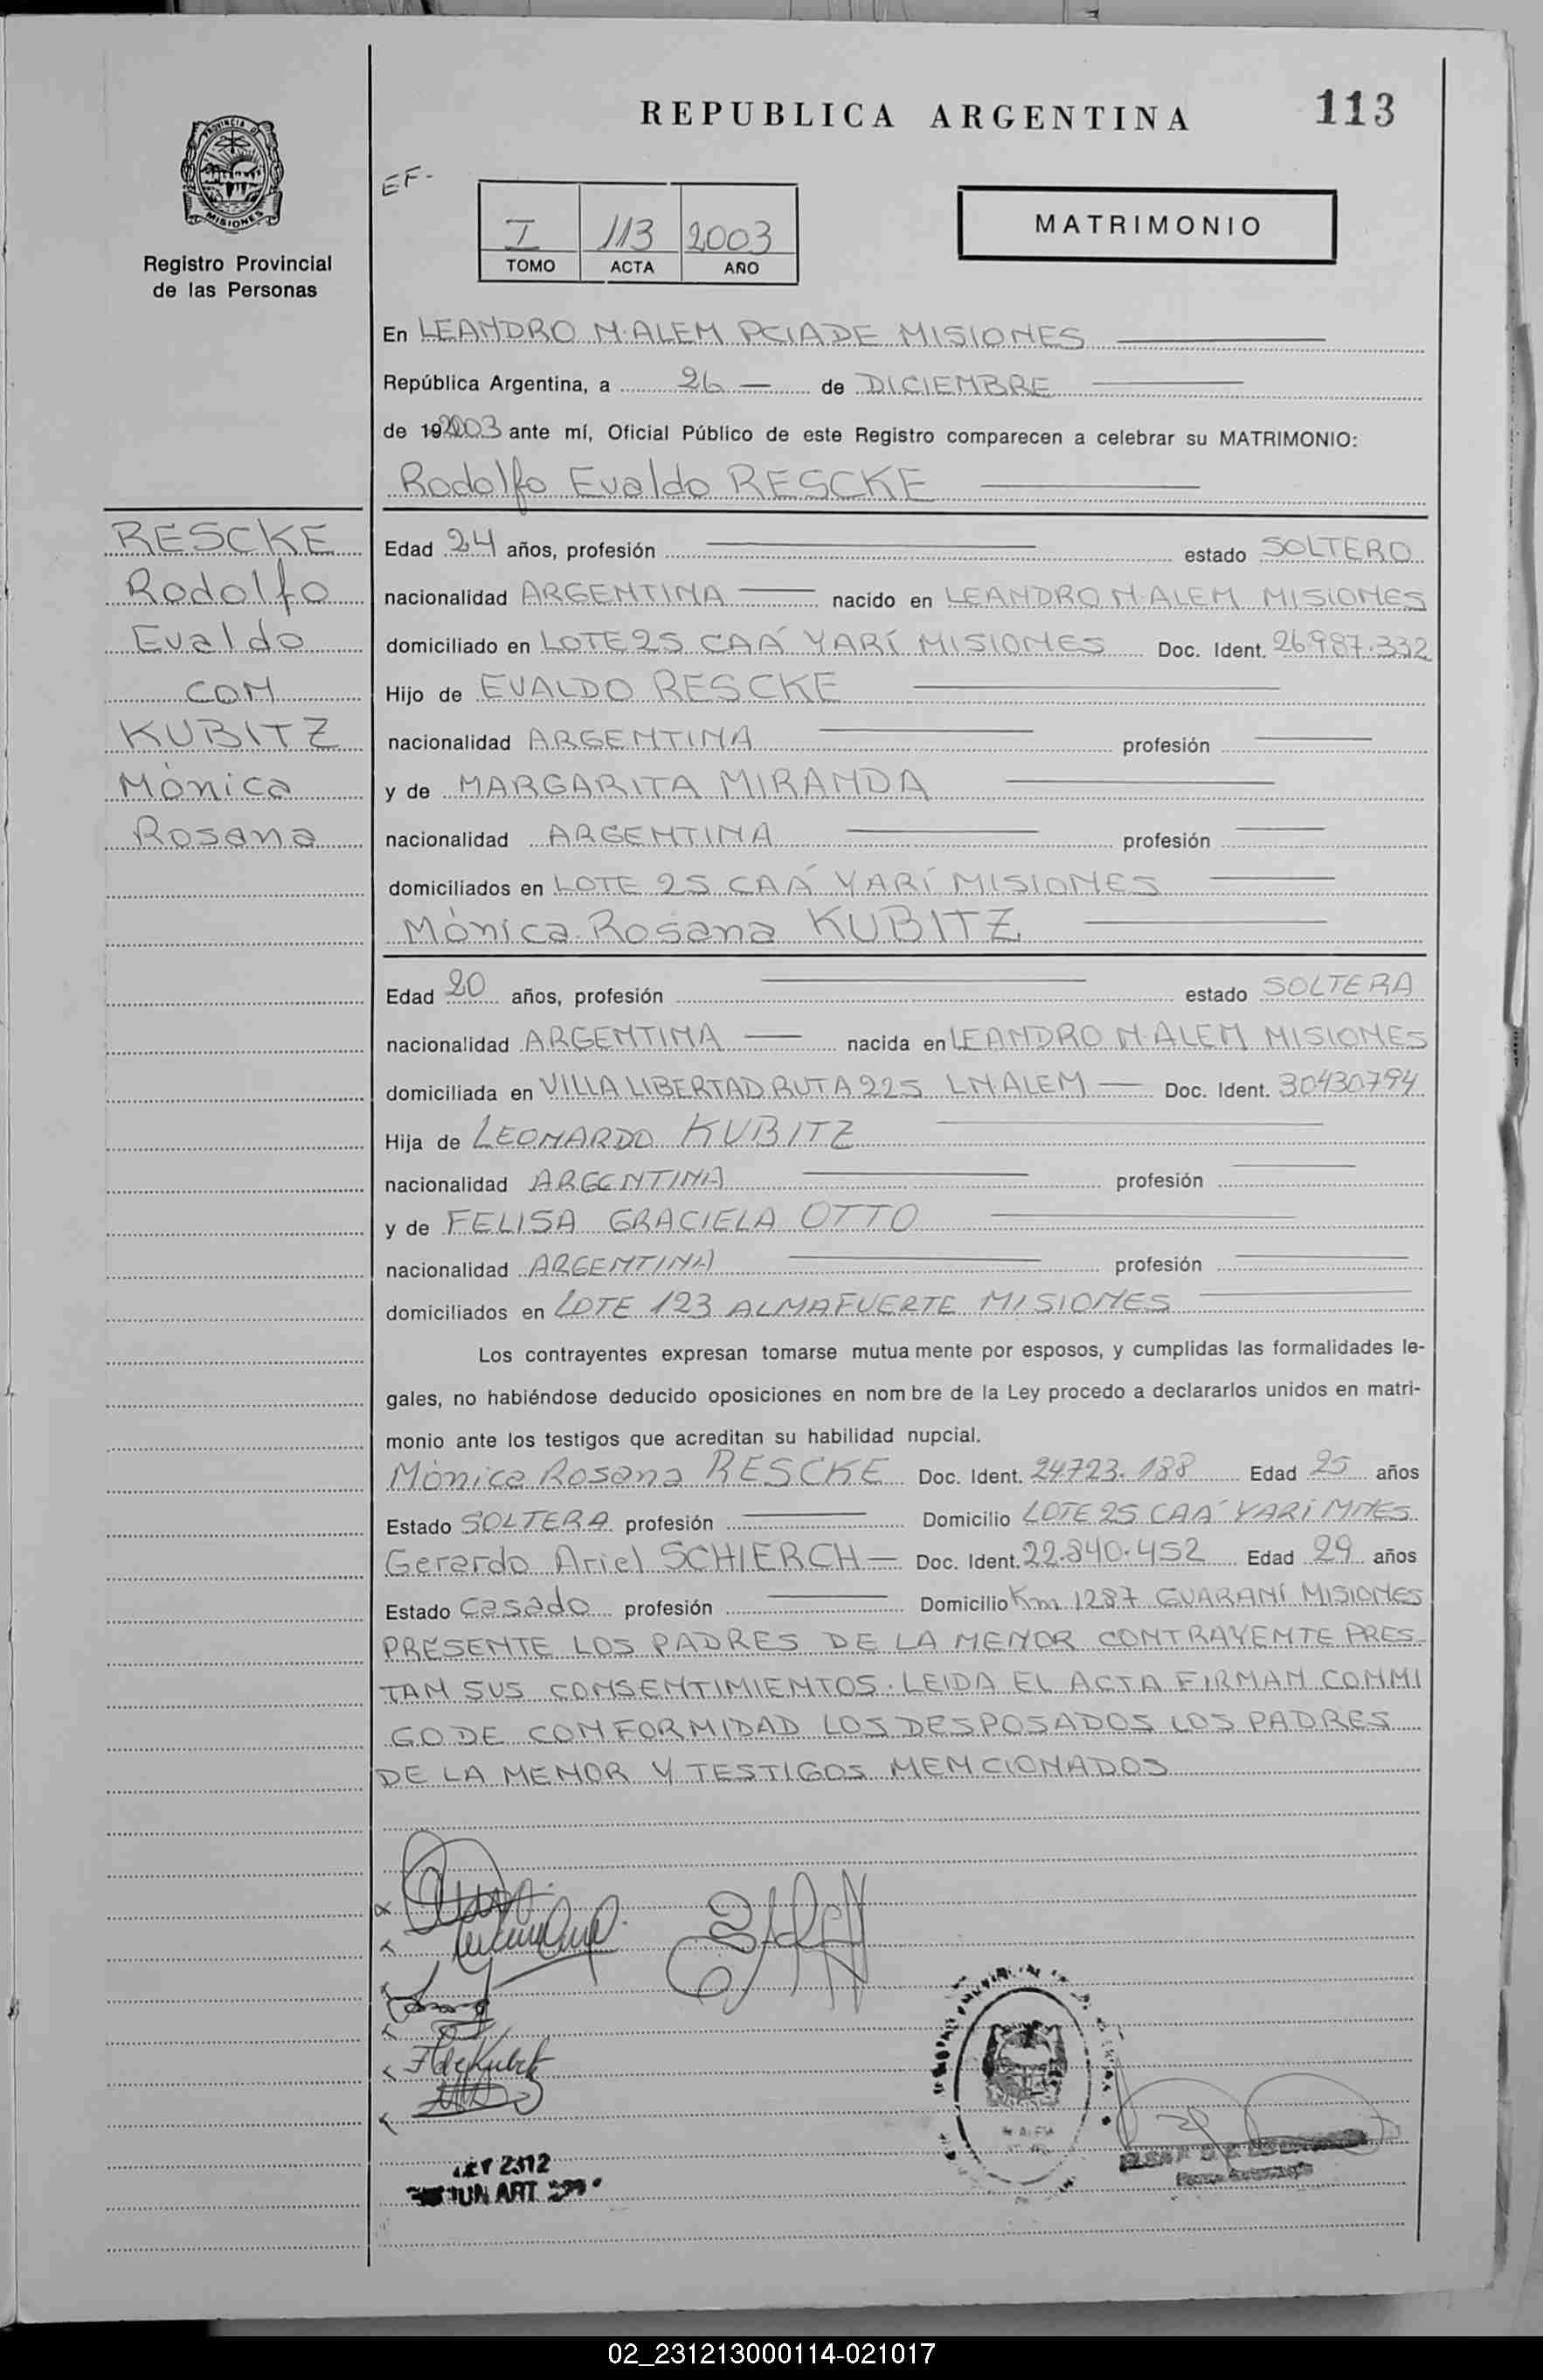 REPUBLICA ARGENTINA
113
PROVINCIA DE
MISIONES
Registro Provincial
de las Personas
EF-
I 113 2003
TOMO ACTA AÑO
MATRIMONIO
En LEANDRO N. ALEM PCIA DE MISIONES
República Argentina, a 26 — de DICIEMBRE
de 192003 ante mí, Oficial Público de este Registro comparecen a celebrar su MATRIMONIO:
Rodolfo Evaldo RESCKE
RESCKE
Rodolfo
Evaldo
CON
KUBITZ
Mónica
Rosana
Edad 24 años, profesión estado SOLTERO
nacionalidad ARGENTINA — nacido en LEANDRO N. ALEM MISIONES
domiciliado en LOTE 25 CAÁ YARÍ MISIONES Doc. Ident. 26.987.332
Hijo de EVALDO RESCKE
nacionalidad ARGENTINA profesión
y de MARGARITA MIRANDA
nacionalidad ARGENTINA profesión
domiciliados en LOTE 25 CAÁ YARÍ MISIONES
Mónica Rosana KUBITZ
Edad 20 años, profesión estado SOLTERA
nacionalidad ARGENTINA — nacida en LEANDRO N. ALEM MISIONES
domiciliada en VILLA LIBERTAD RUTA 225 LNALEM — Doc. Ident. 30430794
Hija de LEONARDO KUBITZ
nacionalidad ARGENTINA profesión
y de FELISA GRACIELA OTTO
nacionalidad ARGENTINA profesión
domiciliados en LOTE 123 ALMAFUERTE MISIONES
Los contrayentes expresan tomarse mutua mente por esposos, y cumplidas las formalidades le-
gales, no habiéndose deducido oposiciones en nom bre de la Ley procedo a declararlos unidos en matri-
monio ante los testigos que acreditan su habilidad nupcial.
Mónica Rosana RESCKE Doc. Ident. 24723.188 Edad 25 años
Estado SOLTERA profesión Domicilio LOTE 25 CAÁ YARÍ MNES
Gerardo Ariel SCHIERCH — Doc. Ident. 22.840.452 Edad 29 años
Estado Casado profesión Domicilio Km 1287 GUARANÍ MISIONES
PRESENTE LOS PADRES DE LA MENOR CONTRAYENTE PRES-
TAN SUS CONSENTIMIENTOS. LEIDA EL ACTA FIRMAN CONMI
GO DE CONFORMIDAD LOS DESPOSADOS LOS PADRES
DE LA MENOR Y TESTIGOS MENCIONADOS
F de Kubitz
LEY 2312
ART
02_231213000114-021017